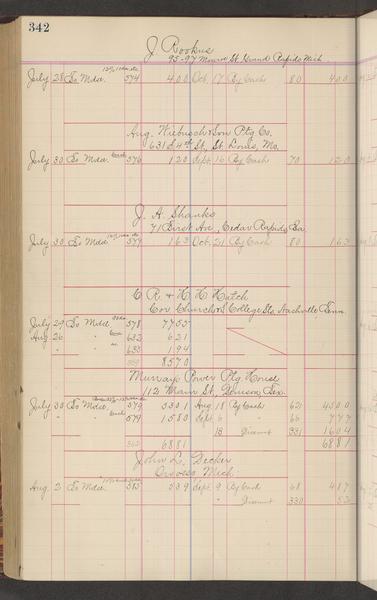 342
J. Rookus
95-97 Monroe St. Grand Rapids Mich.
July 28 To Mdse. 574 400 Oct. 17 By Cash 80 400
Aug. Wiebusch & Son Ptg Co.
631 S 4th St., St. Louis, Mo.
July 30 To Mdse. Cash 576 120 Sept. 16 By Cash 70 120
J. A. Shanks
71 First Ave., Cedar Rapids Ia
July 30 To Mdse. 577 163 Oct. 21 By Cash 80 163
C R & H. H Hatch
Cor Church & College Sts Nashville, Tenn.
July 29 To Mdse. 578 7755
Aug 26 " 632 621
" " 633 194
8570
Murray's Power Ptg House
112 Main St, Denison, Tex.
July 30 To Mdse. 579 5301 Aug 18 By Cash 621 4500
" Cash 579 1580 Sept 6 " 66 777
18 Discount 331 1604
6881 6881
John L. Decker
Owosso Mich.
Aug. 2 To Mdse. 585 539 Sept. 9 By Cash 68 487
" Discount 330 52